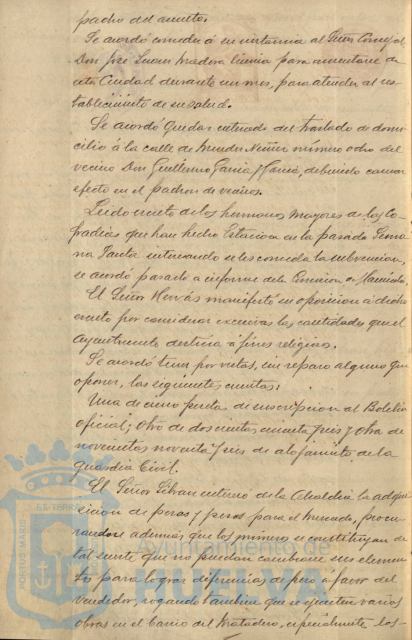 padro del asunto.
Se acordó conceder á su instancia al Señor Concejal
Don José Lucas Madera licencia para ausentarse de
esta Ciudad durante un mes, para atender al res-
tablecimiento de su salud.
Se acordó quedar enterado del traslado de domi-
cilio á la calle de Mendez Nuñez número ocho del
vecino Don Guillermo Garcia y Garcia, debiendo causar
efecto en el padron de vecinos.
Leido escrito de los hermanos mayores de las Co-
fradias que han hecho Estacion en la pasada Sema-
na Santa interesando se les conceda la subvencion,
se acordó pasarlo a informe de la Comision de Hacienda.
El Señor Hervás manifestó su oposicion á dicho
escrito por considerar excesivas las cantidades que el
Ayuntamiento destina á fines religiosos.
Se acordó tener por vistas, sin reparo alguno que
oponer, las siguientes cuentas:
Una de cinco pesetas de suscripcion al Boletin
oficial; otra de doscientas cincuenta y seis y otra de
novecientas noventa y tres de alojamiento de la
guardia Civil.
El Señor interesó de la Alcaldia la adqui-
sicion de pesas y pesos para el Mercado, procu-
randose ademas que los primeros se constituyan de
tal suerte que no puedan cambiarse sus elemen-
tos para lograr diferencias de peso a favor del
vendedor, rogando tambien que se ejecuten varias
obras en el barrio del Matadero, especialmente las
PORTUS MARIS ET TERRÆ
Ayuntamiento de
HUELVA